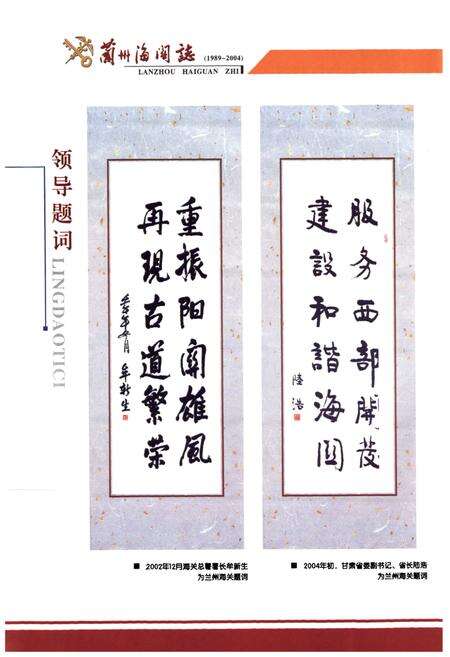 蘭州海関誌 (1989-2004)
LANZHOU HAIGUAN ZHI
领导题词
LINGDAOTICI
重振阳関雄风
再现古道繁荣
牟新生
服务西部開发
建設和諧海関
陸浩
■ 2002年12月海关总署署长牟新生
为兰州海关题词
■ 2004年初，甘肃省委副书记、省长陆浩
为兰州海关题词